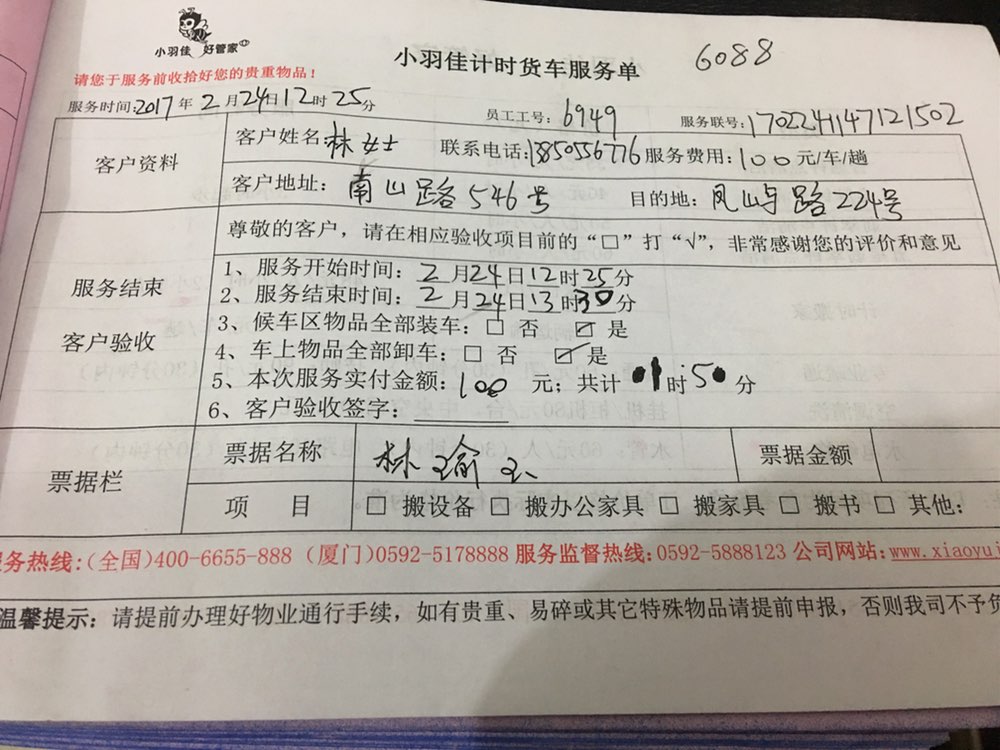 小羽佳 好管家
小羽佳计时货车服务单
6088
请您于服务前收拾好您的贵重物品！
服务时间:2017年2月24日12时25分 员工工号: 6949 服务联号:170224147121502
客户资料
客户姓名:林女士 联系电话:13850556776 服务费用:100元/车/趟
客户地址: 南山路546号 目的地: 凤屿路224号
服务结束
客户验收
尊敬的客户，请在相应验收项目前的“□”打“√”，非常感谢您的评价和意见
1、服务开始时间: 2月24日12时25分
2、服务结束时间: 2月24日13时30分
3、候车区物品全部装车: □ 否 ☑ 是
4、车上物品全部卸车: □ 否 ☑ 是
5、本次服务实付金额: 100 元; 共计 01时50分
6、客户验收签字:
票据栏
票据名称 林瑜 票据金额
项 目 □ 搬设备 □ 搬办公家具 □ 搬家具 □ 搬书 □ 其他:
务热线:(全国)400-6655-888 (厦门)0592-5178888 服务监督热线:0592-5888123 公司网站:www.xiaoyuj
温馨提示: 请提前办理好物业通行手续，如有贵重、易碎或其它特殊物品请提前申报，否则我司不予负